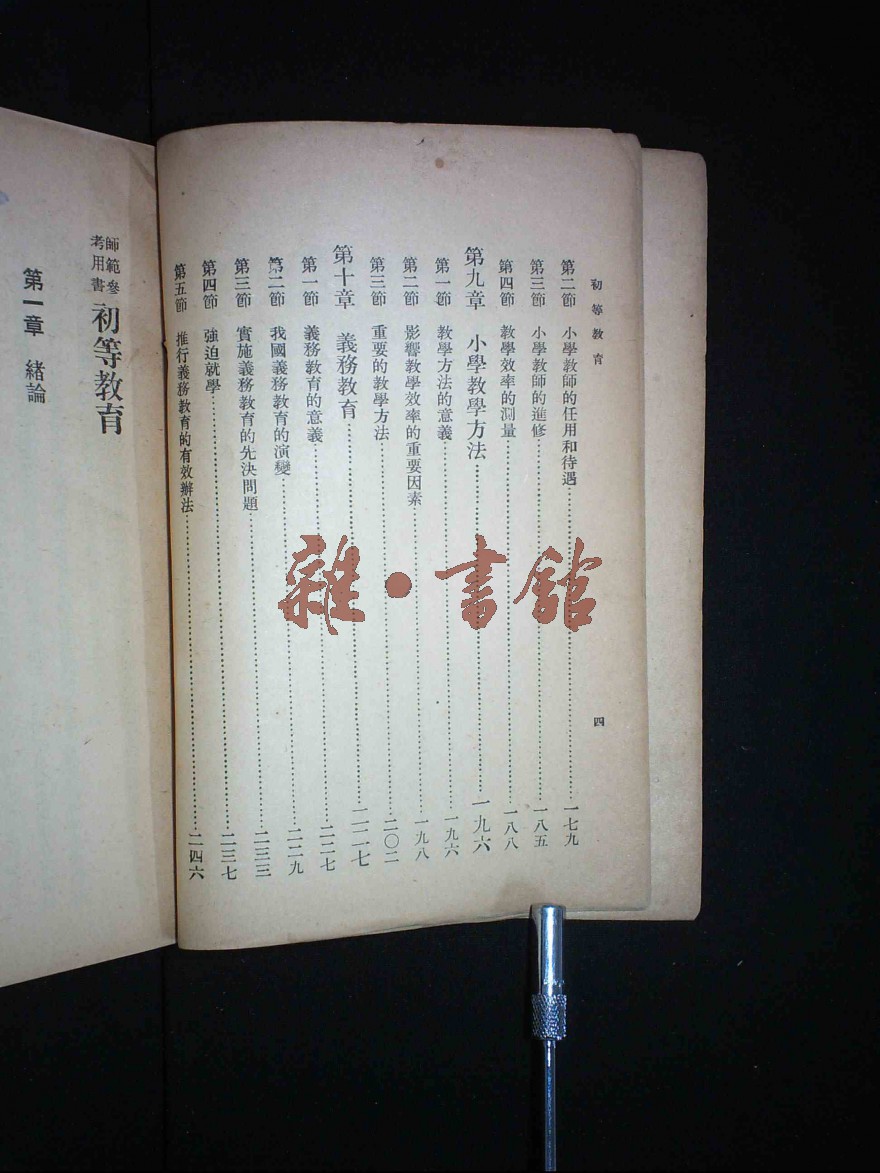 初等教育
四
第二節 小學教師的任用和待遇 一七九
第三節 小學教師的進修 一八五
第四節 教學效率的測量 一八八
第九章 小學教學方法 一九六
第一節 教學方法的意義 一九六
第二節 影響教學效率的重要因素 一九八
第三節 重要的教學方法 二〇二
第十章 義務教育 二二七
第一節 義務教育的意義 二二七
第二節 我國義務教育的演變 二二九
第三節 實施義務教育的先決問題 二三三
第四節 強迫就學 二三七
第五節 推行義務教育的有效辦法 二四六
師範參
考用書
初等教育
第一章 緒論
雜·書館